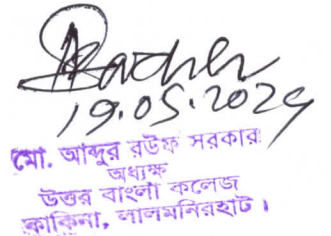 19.05.2024
মো. আব্দুর রউফ সরকার
অধ্যক্ষ
উত্তর বাংলা কলেজ
কাকিনা, লালমনিরহাট।